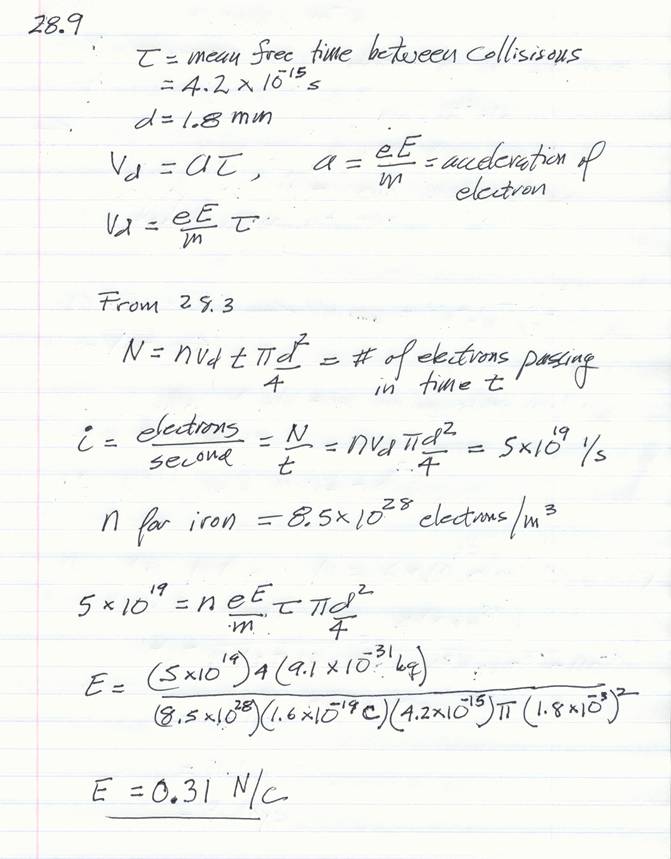 28.9
τ = mean free time between collisisous
= 4.2 × 10⁻¹⁵ s
d = 1.8 mm
Vd = aτ, a = eE/m = acceleration of
electron
Vd = eE/m τ
From 28.3
N = nvd t πd²/4 = # of electrons passing
in time t
i = electrons/second = N/t = nvd πd²/4 = 5×10¹⁹ 1/s
n for iron = 8.5×10²⁸ electrons/m³
5×10¹⁹ = n eE/m τ πd²/4
E = (5×10¹⁹) 4 (9.1 × 10⁻³¹ kg) / (8.5×10²⁸)(1.6×10⁻¹⁹ C)(4.2×10⁻¹⁵) π (1.8×10⁻³)²
E = 0.31 N/C